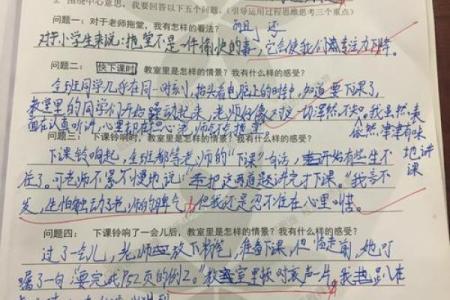 2 围绕中心意思，我要回答以下五个问题。(引导运用过程思维思考三个重点)
问题一：对于老师拖堂，我有怎样的看法？
对于小学生来说，拖堂不是一件愉快的事，它会使我们
问题二：快下课时，教室里是怎样的情景？我有什么样的感受？
全班同学几乎在同一时刻，抬头看电脑上的时钟，知道要下课了，
教室里的同学们开始骚动起来，老师好像对这一切浑然不知，我虽然表
面在认真听讲，心里却在担心老师会不会拖堂 依然津津有味
问题三：下课铃响时，教室里是怎样的情景？我有什么样的感受？ 地讲课
下课铃响起，全班都等老师的“下课”一句话，开始有些坐不
住了。可老师不紧不慢地说：“把这两道题讲完才下课。”我言不
发，生怕触动了老师的脾气，但我还是忍不住在心里叫苦。
问题四：下课铃响了一会儿后，教室里是怎样的情景？我有什么样的感受？
过了一会儿，老师放下粉笔，准备下课，但临走前，她叮
嘱了一句“要完成P52页的例2。”教室里唉声一片，我